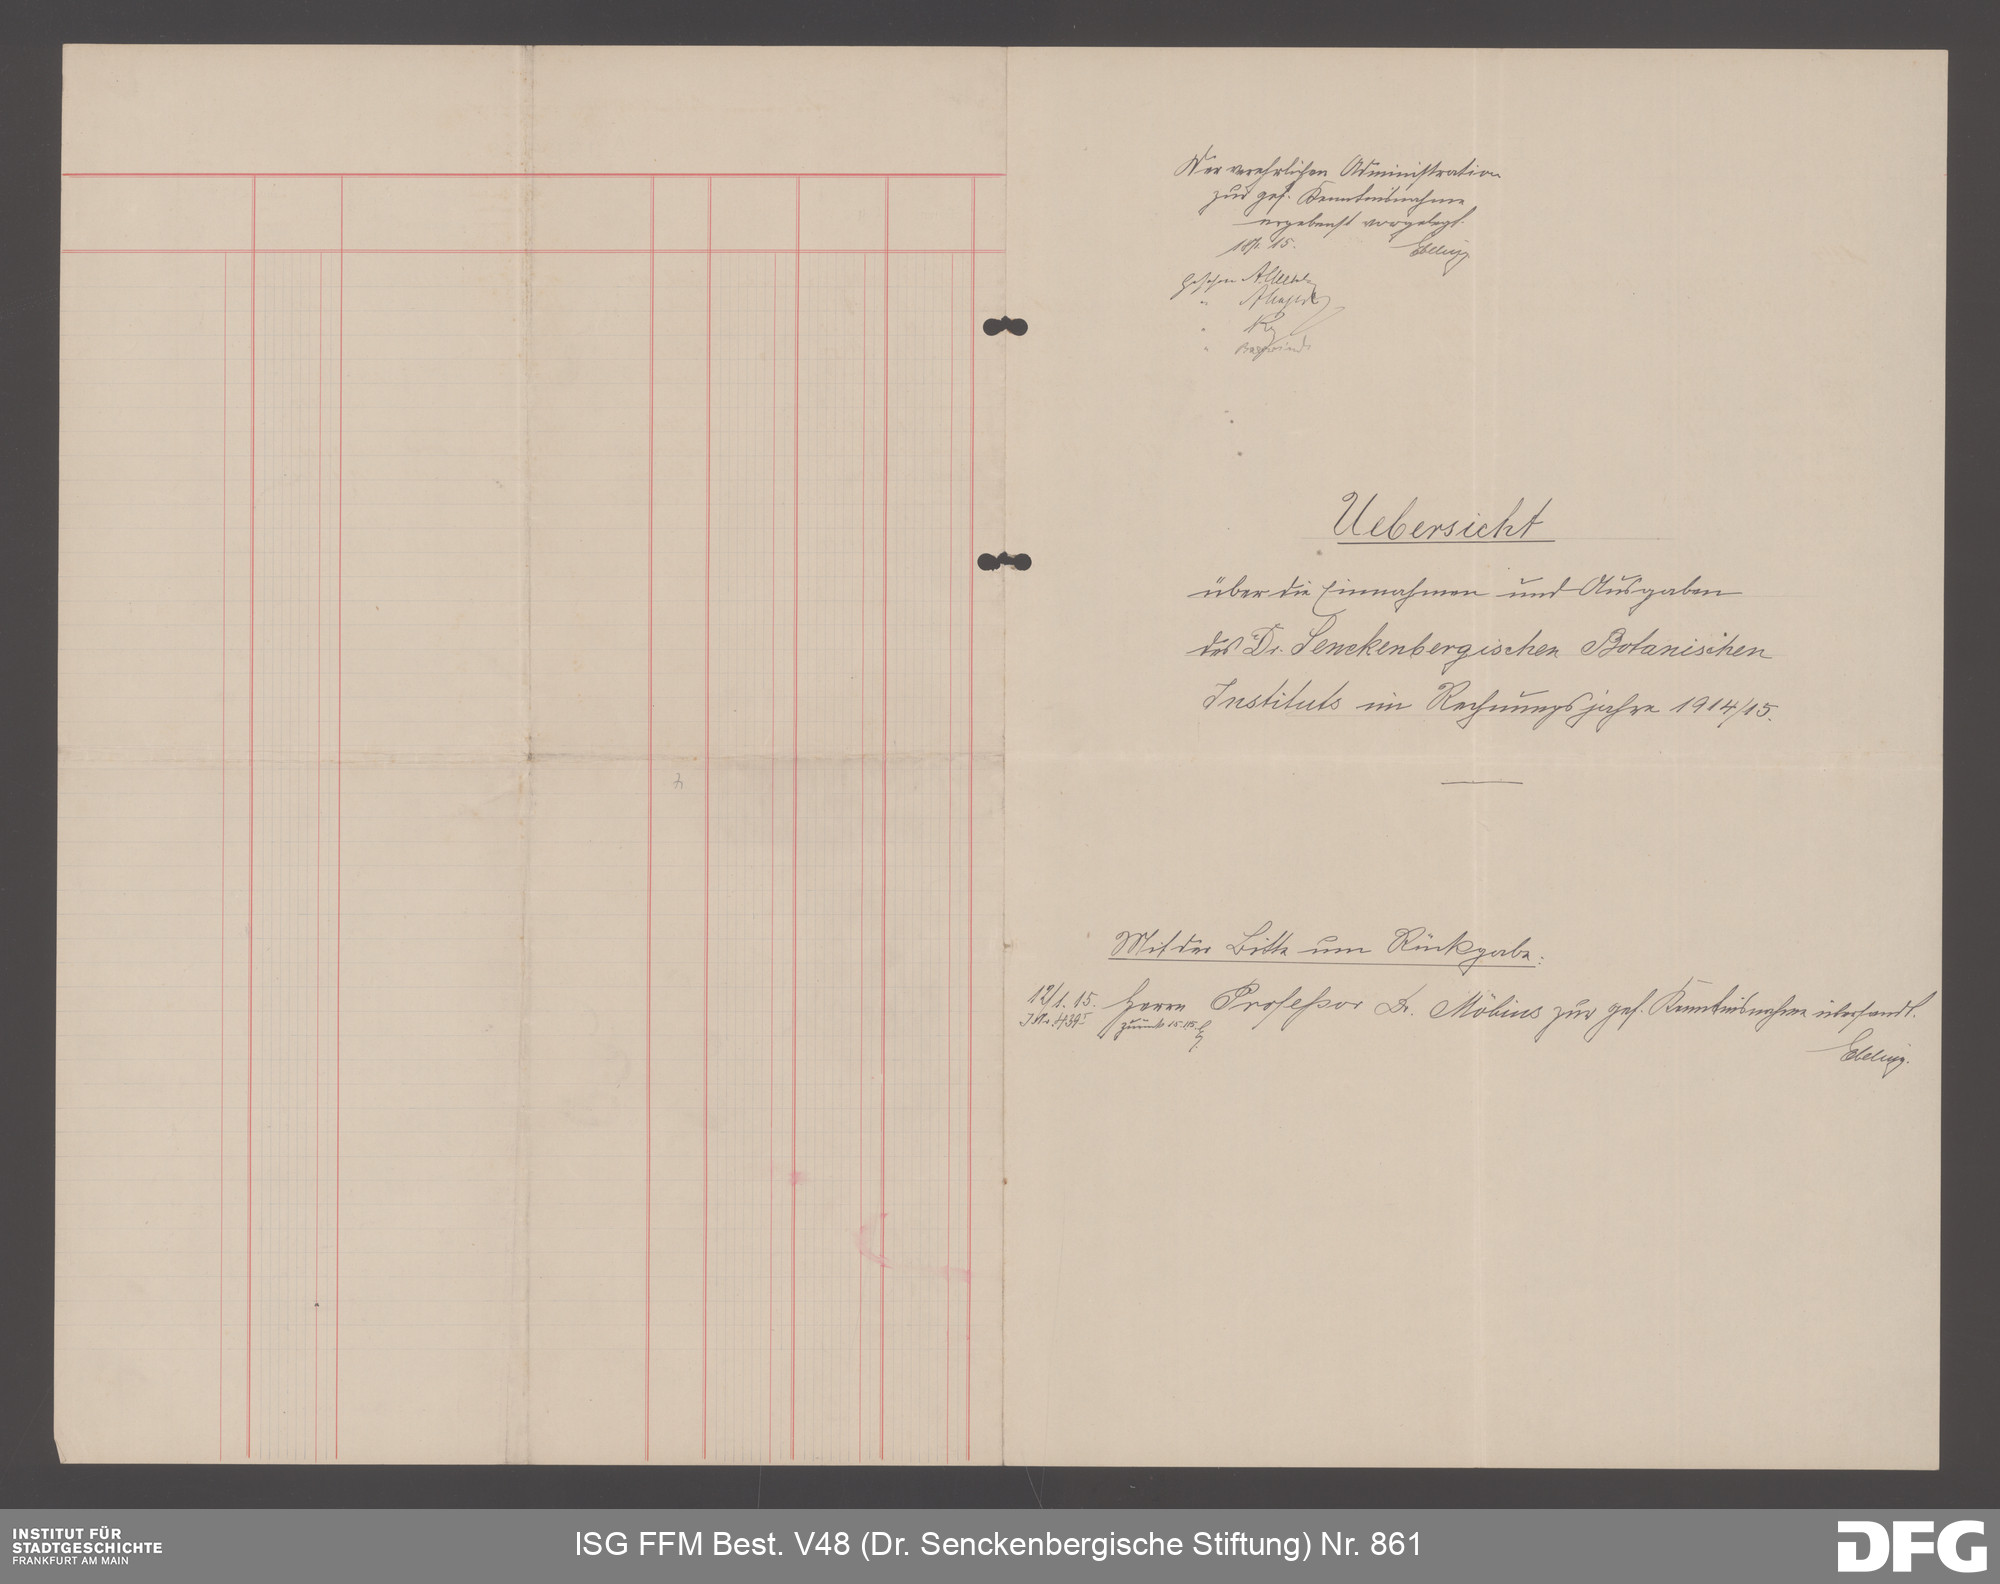 Der verehrlichen Administration
zur gef. Kenntnisnahme
ergebenst vorgelegt.
15. Ebeling
gesehen
"
"
"
Uebersicht
über die Einnahmen und Ausgaben
des Dr. Senckenbergischen Botanischen
Instituts im Rechnungsjahre 1914/15.
Mit der Bitte um Rückgabe.
12/1. 15. Herrn Professor Dr. Möbius zur gef. Kenntnisnahme übersandt.
zurück
Ebeling.
INSTITUT FÜR
STADTGESCHICHTE
FRANKFURT AM MAIN
ISG FFM Best. V48 (Dr. Senckenbergische Stiftung) Nr. 861
DFG